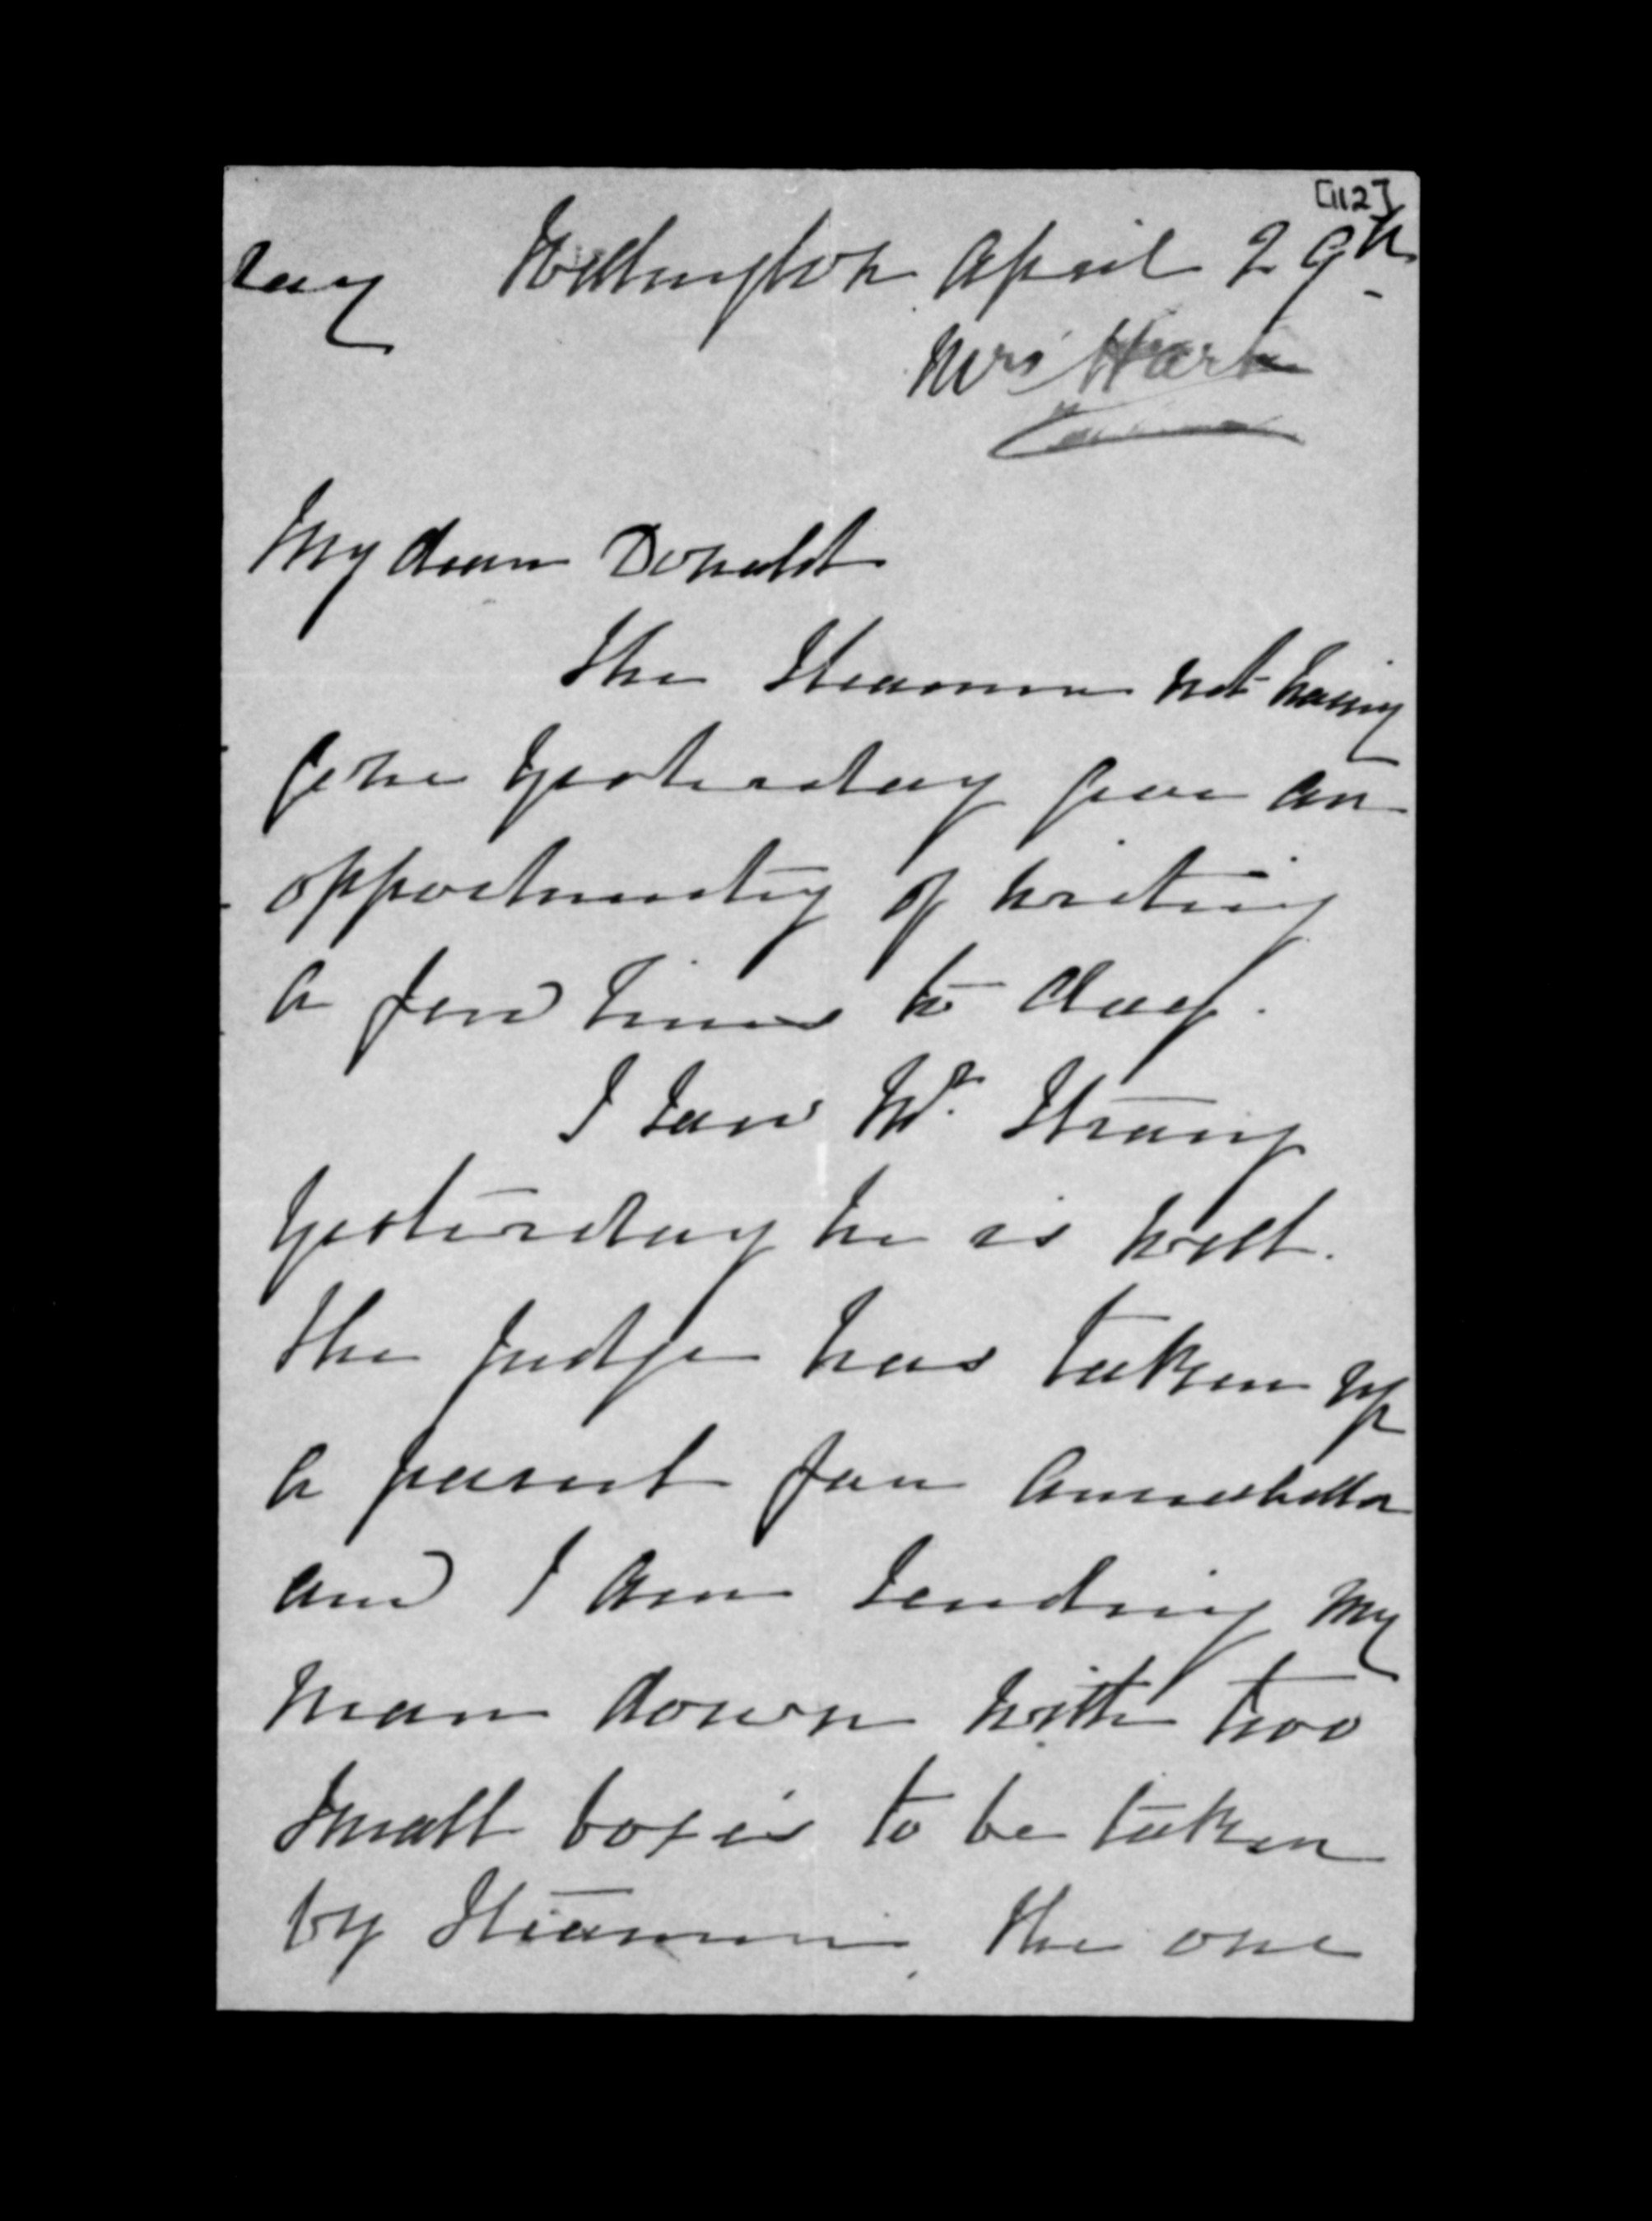 [112]
Wellington April 29th
Mrs Hart
My dear Donald
The Steamer not having
gone yesterday give an
opportunity of writing
a few lines to day.
I saw Mr Strang
yesterday he is well.
The Judge has taken up
a parcel for Annabella
and I am sending my
man down with two
small boxes to be taken
by Steamer. The one